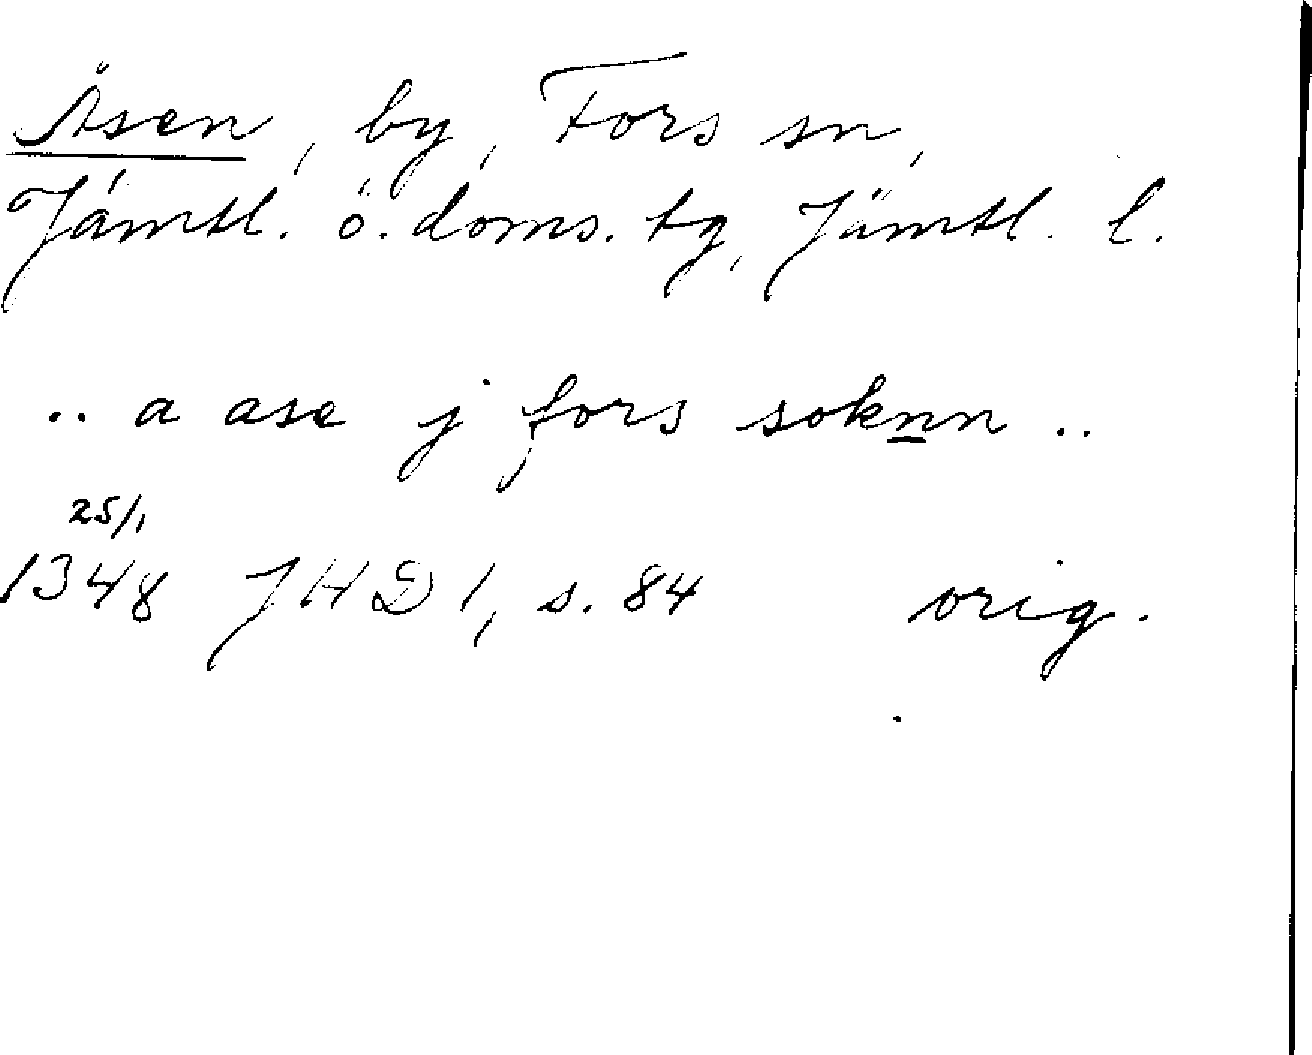 Åsen, by, Fors sn,
Jämtl. ö. doms. tg, Jämtl. l.
.. a ase j fors soknn ..
25/1
1348 JHD 1, s. 84 orig.